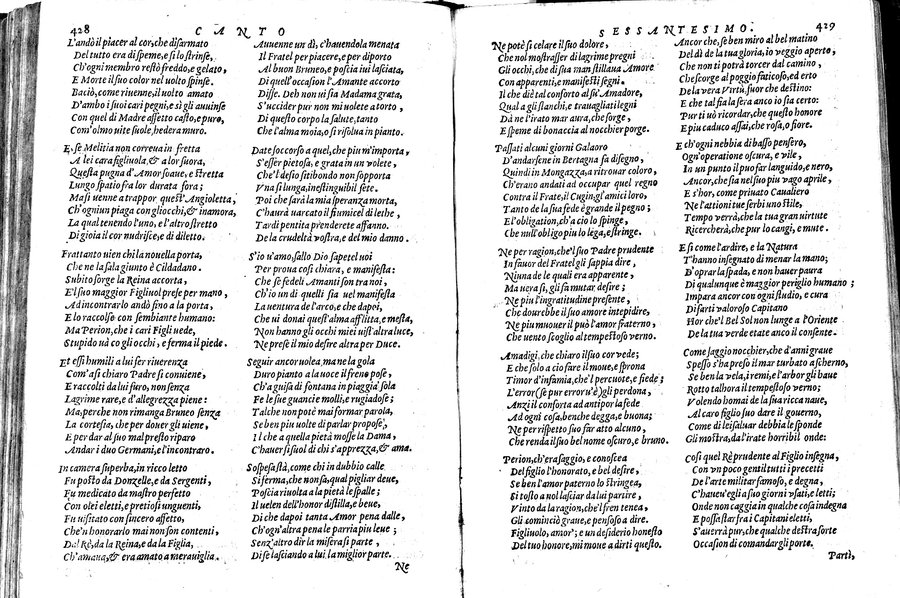 428 CANTO
L'andò il piacer al cor, che disarmato
Del tutto era di speme, e sì lo strinse,
Ch'ogni membro restò freddo, e gelato,
E Morte il suo color nel uolto spinse.
Baciò, come riuenne, il uolto amato
D'ambo i suoi cari pegni, e sì gli auuinse
Con quel di Madre affetto casto, e puro,
Com'olmo uite suole, hedera muro.
E se Melitia non correua in fretta
A lei cara figliuola, & a lor suora,
Questa pugna d'Amor soaue, e stretta
Lungo spatio fra lor durata fora;
Ma si uenne a trappor quest'Angioletta,
Ch'ogniun piaga con gli occhi, & inamora,
La qual tenendo l'uno, e l'altro stretto
Di gioia il cor nudrisce, e di diletto.
Frattanto uien chi la nouella porta,
Che ne la sala giunto è Cildadano.
Subito sorge la Reina accorta,
E'l suo maggior Figliuol prese per mano,
Ad incontrarlo andò fino a la porta,
E lo raccolse con sembiante humano:
Ma Perion, che i cari Figli uede,
Stupido uà co gli occhi, e ferma il piede.
Et essi humili a lui fer riuerenza
Com'a sì chiaro Padre si conuiene,
E raccolti da lui furo, non senza
Lagrime rare, e d'allegrezza piene:
Ma, perche non rimanga Bruneo senza
La cortesia, che per douer gli uiene,
E per dar al suo mal presto riparo
Andar i duo Germani, e l'incontraro.
In camera superba, in ricco letto
Fu posto da Donzelle, e da Sergenti,
Fu medicato da mastro perfetto
Con olei eletti, e pretiosi unguenti,
Fu uisitato con sincero affetto,
Che'n honorarlo mai non son contenti,
Dal Rè, da la Reina, e da la Figlia,
Ch'amaua, & era amato a merauiglia.
Auuenne un dì, c'hauendola menata
Il Fratel per piacere, e per diporto
Al buon Bruneo, e poscia iui lasciata,
Di quell'occasion l'Amante accorto
Disse. Deh non ui sia Madama grata,
S'uccider pur non mi uolete a torto,
Di questo corpo la salute, tanto
Che l'alma moia, o si risolua in pianto.
Date soccorso a quel, che piu m'importa,
S'esser pietosa, e grata in un uolete,
Che'l desio sitibondo non sopporta
V'na sì lunga, inestinguibil sete.
Poi che sarà la mia speranza morta,
C'haurà uarcato il fiumicel di lethe,
Tardi pentita prenderete affanno.
De la crudeltà vostra, e del mio danno.
S'io u'amo, fallo Dio sapetel uoi
Per proua così chiara, e manifesta:
Che se fedeli Amanti son tra noi,
Ch'io un di quelli sia uel manifesta
La uentura de l'arco, e che da poi,
Che ui donai quest'alma afflitta, e mesta,
Non hanno gli occhi miei uist'altra luce,
Ne prese il mio desire altra per Duce.
Seguir ancor uolea, ma ne la gola
Duro pianto a la uoce il freno pose,
Ch'a guisa di fontana in piaggia sola
Fe le sue guancie molli, e rugiadose;
Talche non potè mai formar parola,
Se ben piu uolte di parlar propose,
Il che a quella pietà mosse la Dama,
C'hauer si suol di chi s'apprezza, & ama.
Sospesa stà, come chi in dubbio calle
Si ferma, che non sa, qual pigliar deue,
Poscia riuolta a la pietà le spalle;
Il uelen dell'honor distilla, e beue,
Di che dapoi tanta Amor pena dalle,
Ch'ogn'altra pena le parria piu leue;
Senz'altro dir la misera si parte,
Di se lasciando a lui, la miglior parte.
Ne
SESSANTESIMO. 429
Ne potè sì celare il suo dolore,
Che nol mostrasser di lagrime pregni
Gli occhi, che di sua man stillaua Amore
Con apparenti, e manifesti segni.
Il che diè tal conforto al su' Amadore,
Qual a gli stanchi, e trauagliati legni
Dà ne l'irato mar aura, che sorge,
E speme di bonaccia al nocchier porge.
Passati alcuni giorni Galaoro
D'andarsene in Bertagna fa disegno,
Quindi in Mongazza, a ritrouar coloro,
Ch'erano andati ad occupar quel regno
Contra il Frate, il Cugin, gl'amici loro,
Tanto de la sua fede è grande il pegno;
E l'obligation, ch'a cio lo spinge,
Che null'obligo piu lo lega, e stringe.
Ne per ragion, che'l suo Padre prudente
In fauor del Fratel gli sappia dire,
Niuna de le quali era apparente,
Ma uera sì, gli fa mutar desire;
Ne piu l'ingratitudine presente,
Che dourebbe il suo amore intepidire,
Ne piu muouer il può l'amor fraterno,
Che uento scoglio al tempestoso verno.
Amadigi, che chiaro il suo cor vede;
E che solo a cio fare il moue, e sprona
Timor d'infamia, che'l percuote, e fiede;
L'error (se pur error u'è) gli perdona,
Anzi il conforta ad antipor la fede
Ad ogni cosa, benche degga, e buona;
Ne per rispetto suo far atto alcuno,
Che renda il suo bel nome oscuro, e bruno.
Perion, ch'era saggio, e conoscea
Del figlio l'honorato, e bel desire,
Se ben l'amor paterno lo stringea,
Si tosto a nol lasciar da lui partire,
Vinto da la ragion, che'l fren tenea,
Gli cominciò graue, e pensoso a dire.
Figliuolo, amor; e un desiderio honesto
Del tuo honore, mi moue a dirti questo.
Ancor che, se ben miro al bel matino
Del dì de la tua gloria, io veggio aperto,
Che non ti potrà torcer dal camino,
Che sorge al poggio faticoso, ed erto
De la vera Virtù, fuor che destino:
E che tal fia la sera anco io sia certo:
Pur ti uò ricordar, che questo honore
E piu caduco assai, che rosa, o fiore.
E ch'ogni nebbia di basso pensero,
Ogn'operatione oscura, e vile,
In un punto il puo far languido, e nero,
Ancor, che sia nel suo piu vago aprile,
E s'hor, come priuato Caualiero
Ne l'attioni tue serbi uno stile,
Tempo verrà, che la tua gran uirtute
Ricercherà, che pur lo cangi, e mute.
E sì come l'ardire, e la Natura
T'hanno insegnato di menar la mano;
D'oprar la spada, e non hauer paura
Di qualunque è maggior periglio humano;
Impara ancor con ogni studio, e cura
Di farti valoroso Capitano
Hor che'l Bel Sol non lunge a l'Oriente
De la tua verde etate anco il consente.
Come saggio nocchier, che d'anni graue
Spesso s'ha preso il mar turbato a scherno,
Se ben la vela, i remi, e l'arbor gli haue
Rotto talhora il tempestoso verno;
Volendo homai de la sua ricca naue,
Al caro figlio suo dare il gouerno,
Come di lei saluar debbia le sponde
Gli mostra, da l'irate horribili onde:
Così quel Rè prudente al Figlio insegna,
Con vn poco gentil tutti i precetti
De l'arte militar famoso, e degna,
C'haueu'egli a suo giorni vsati, e letti;
Onde non caggia in qualche cosa indegna
E possa star fra i Capitani eletti,
S'auerrà pur, che qualche destra sorte
Occasion di comandar gli porte.
Parti,